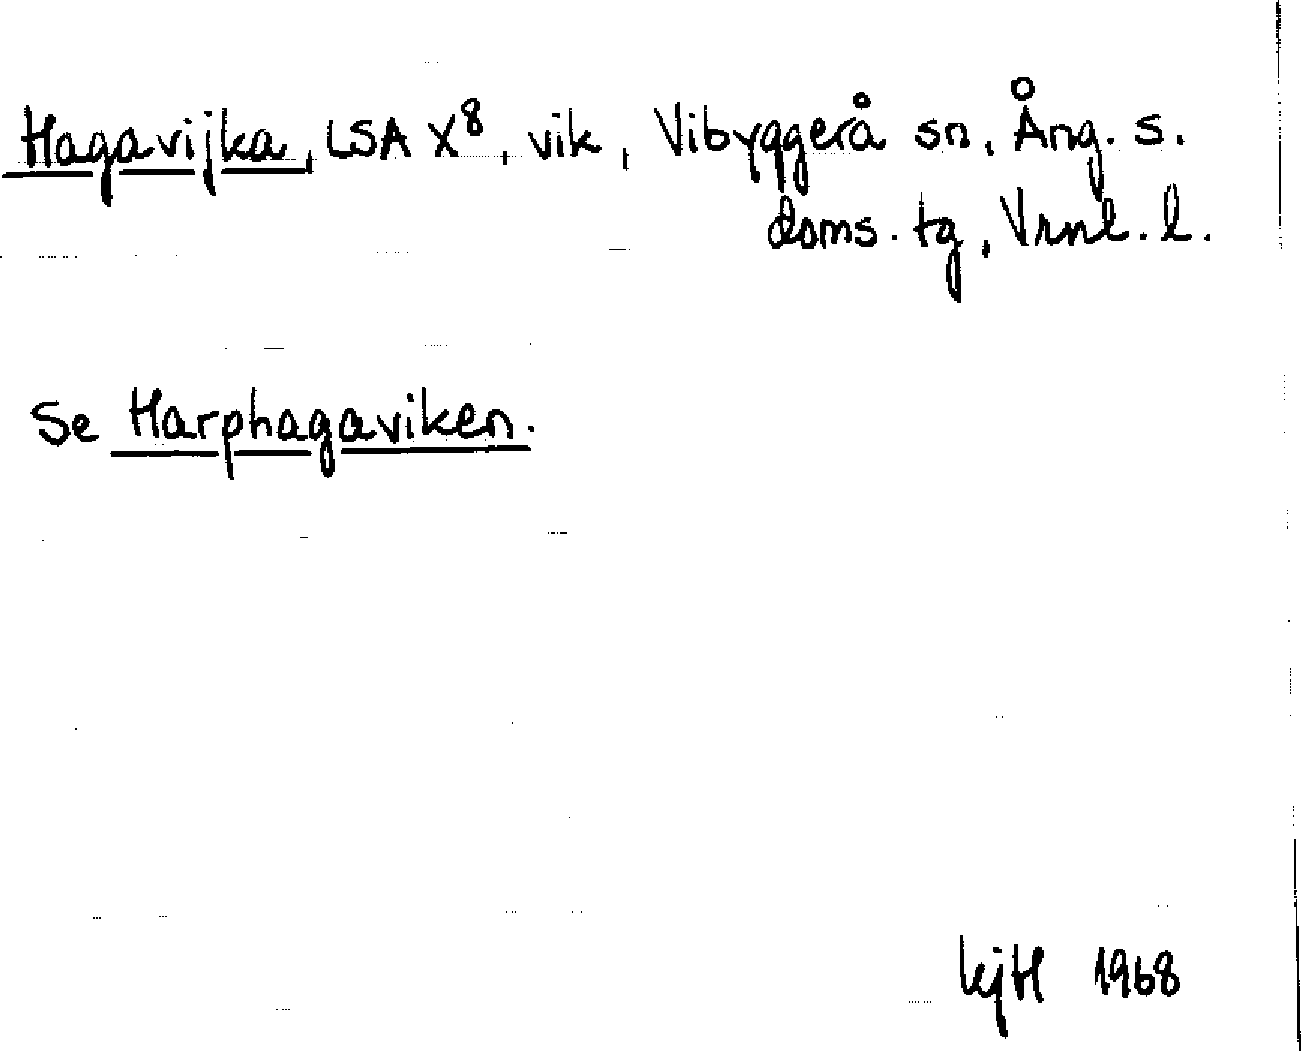 Hagavijka, LSA X⁸, vik, Vibyggerå sn, Ång. s.
doms. tg, Vrnl. l.
Se Harphagaviken.
kjH 1968